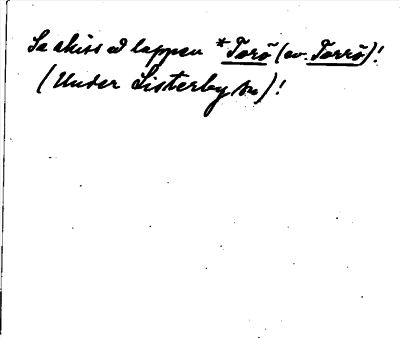 Se skiss å lappen *Torö (ev. Torrö)!
(Under Listerby sn)!